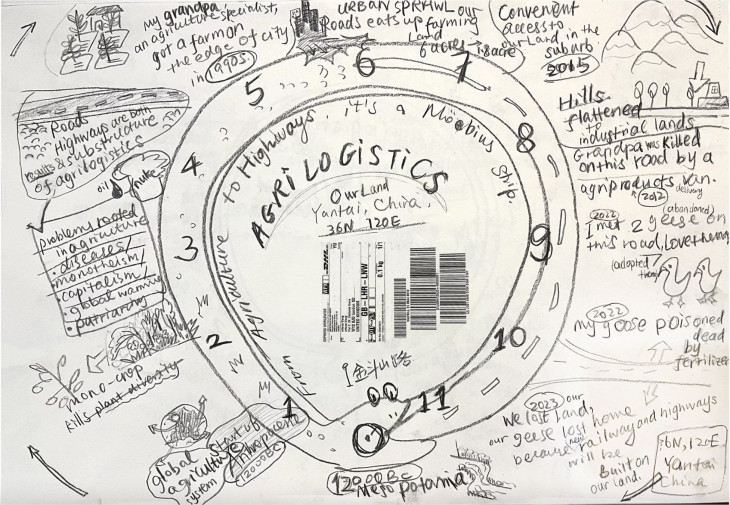 my grandpa
an agriculture specialist,
got a farm on
the edge of city
in 1990s.
URBAN SPRAWL our
Roads eats up farming
Land
6 acres → 1.8 acre
Convenient
access to
our Land, in the
suburb
2015
Hills
flattened
to
industrial lands
Grandpa was killed
on this road by a
agriproducts van.
delivery
2012
(abandoned)
2022
I met 2 geese on
this road, Love them
(adopted
them)
2022
my goose poisoned
dead
by
fertilizer
2023 our
We lost Land,
our geese lost home
because new railway and highways
will be
built on
our land.
36N, 120E
Yantai
China
Roads
Highways are both
results & substructure
of agrilogistics
oil
nuke
problems rooted
in agriculture
• diseases
• monotheism
• capitalism
• global warming
• patriarchy
mono-crop
kills plant diversity
global
agriculture
system
start of
Anthropocene
12000BC
12000BC
Mesopotamia
1
2
3
4
5
6
7
8
9
10
11
From Agriculture to Highways, it's a Möebius Strip.
AGRILOGISTICS
Our Land
Yantai, China.
36N 120E
DHL
GB-LHR-LNV
0.1 kg